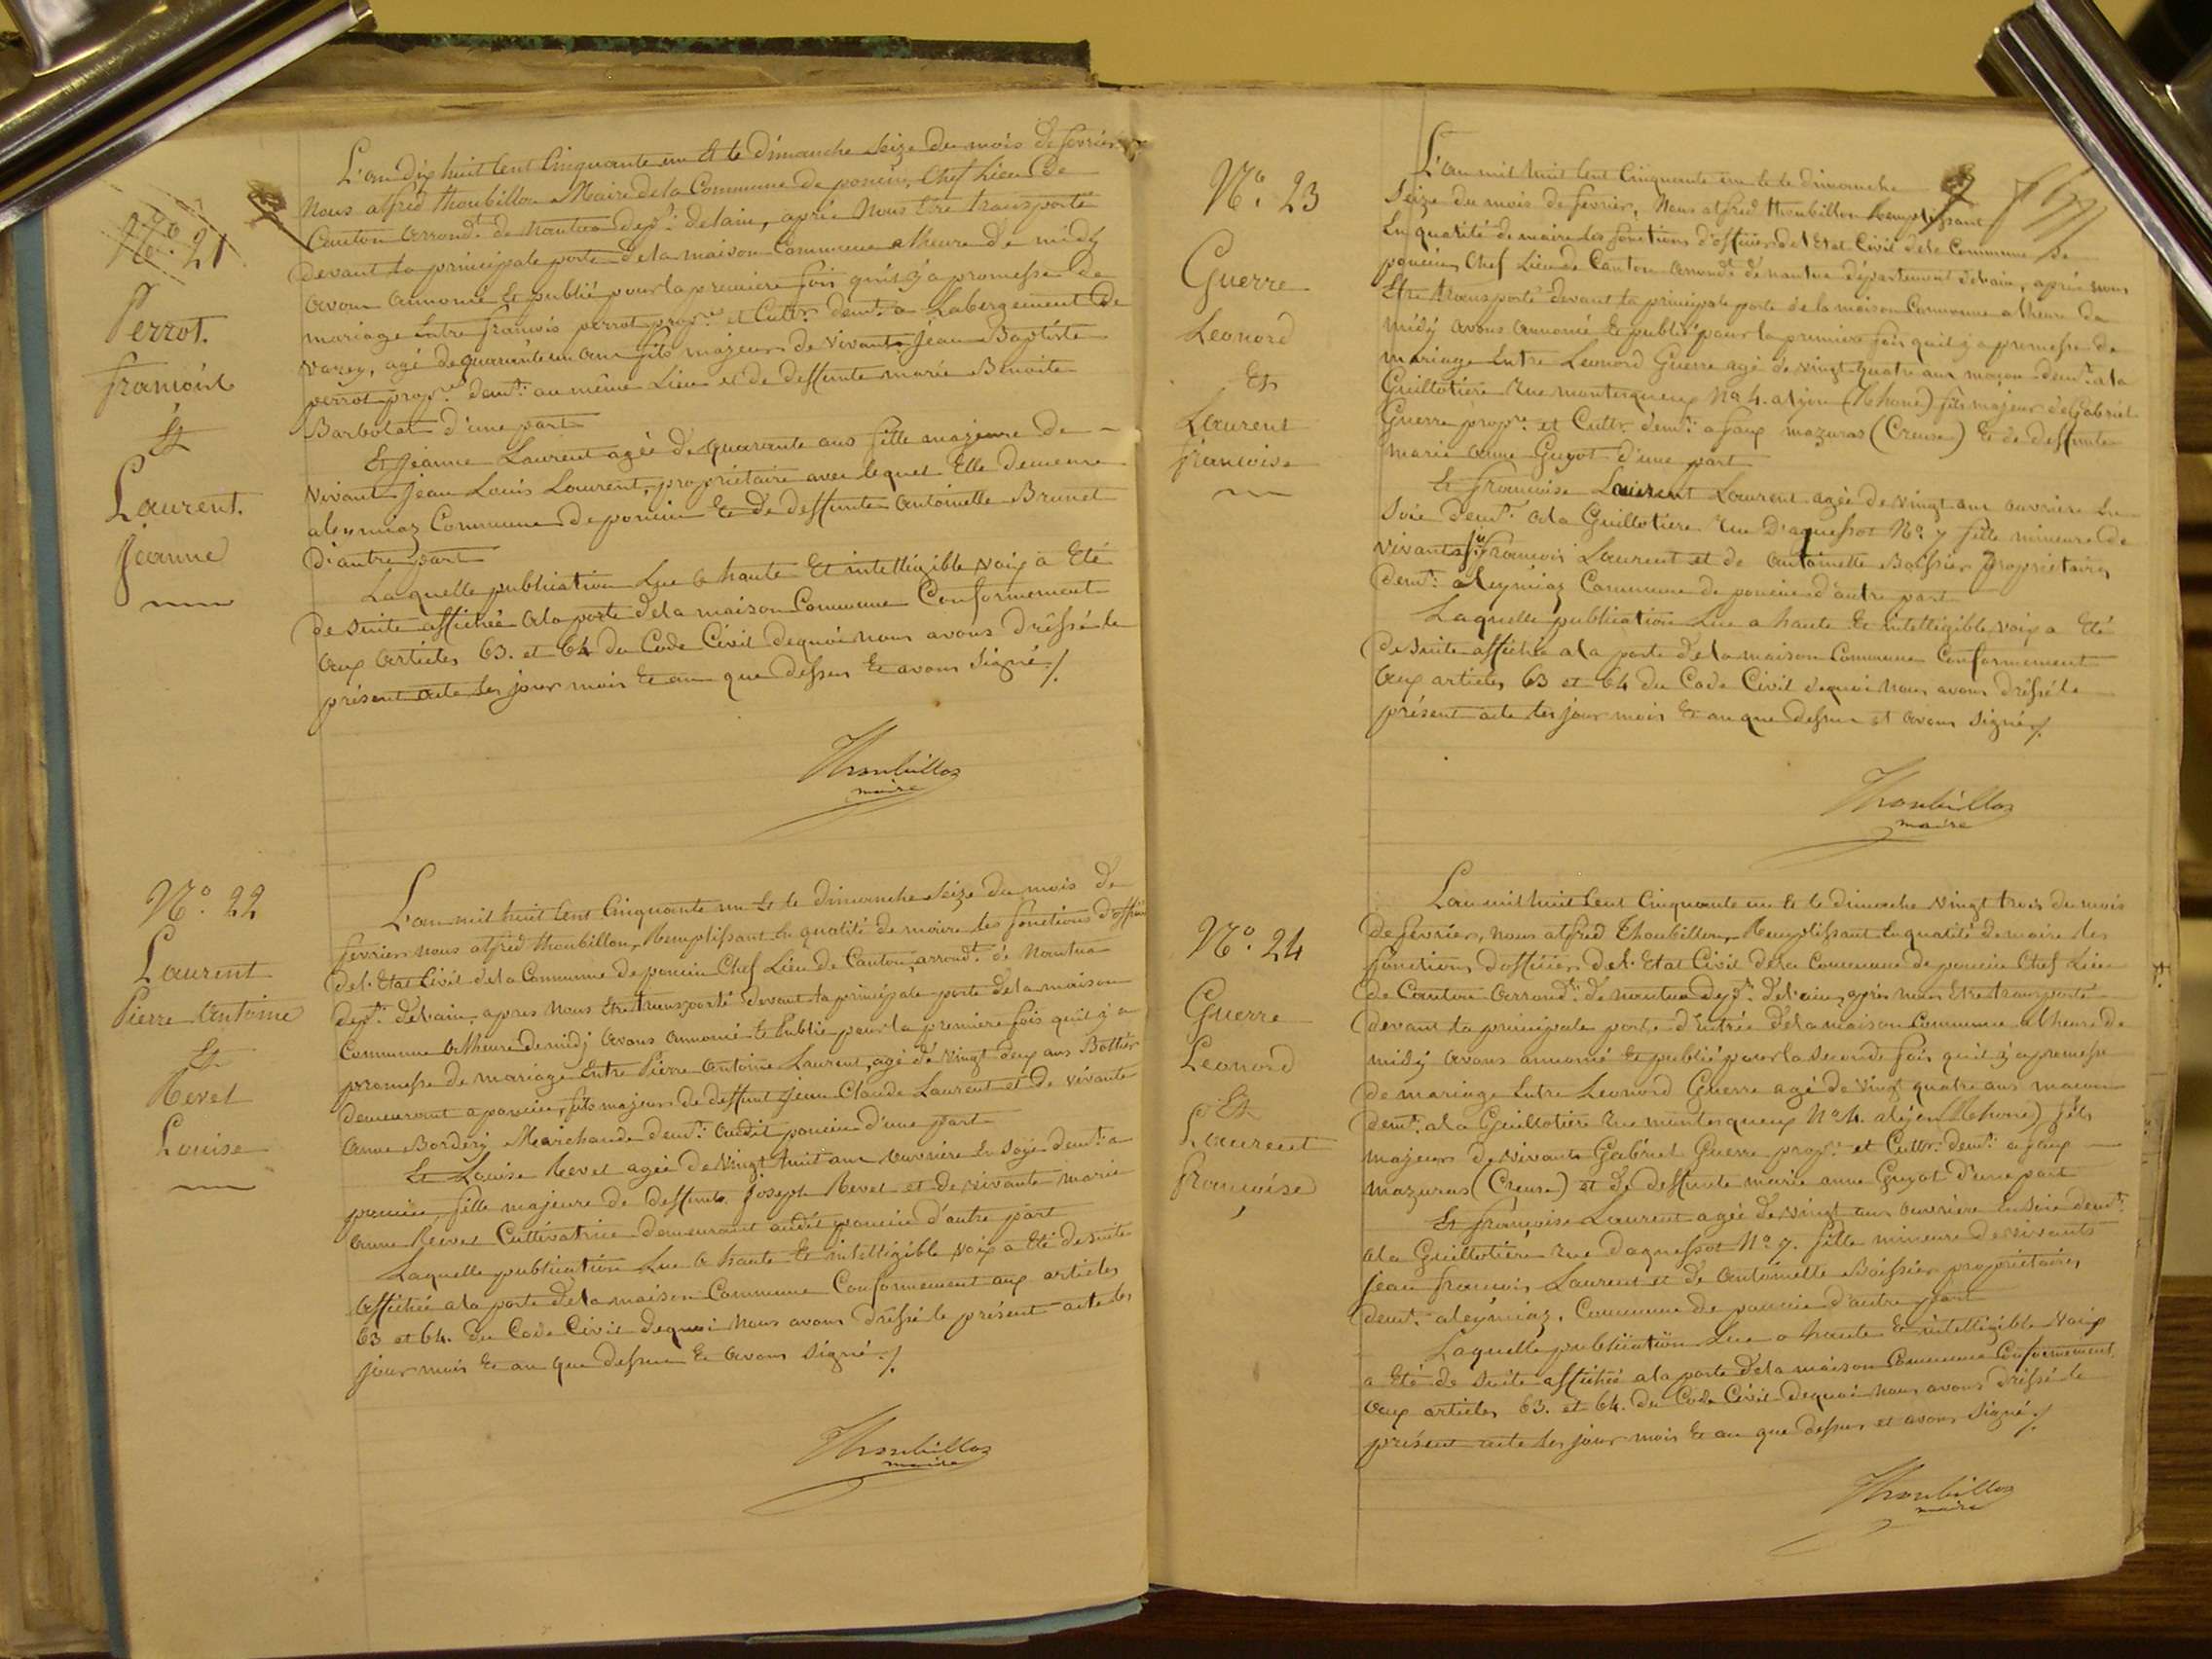 N° 21
Perrot
françois
Et
Laurent
Jeanne
L'an dix huit Cent Cinquante un Et le dimanche seize du mois de fevrier
Nous alfred thoubillon Maire de la Commune de poncin, Chef Lieu De
Canton arrondt. de Nantua dept. de lain, après Nous Etre transporté
devant la principale porte de la maison Commune a lheure de midy
avons annoncé Et publié pour la premiere fois qu'il y a promesse de
mariage Entre françois perrot propre. et Cultr. demt. a Labergement de
varey, agé de quarante un ans fils majeur de vivant Jean Baptiste
perrot propre. demt. au même Lieu et de deffunte marie Benoite
Barbolat d'une part
Et Jeanne Laurent agée de quarante ans fille majeure de
vivant Jean Louis Laurent, propriétaire avec lequel Elle demeure
aleymiaz Commune de poncin Et de deffunte antoinette Brunet
d'autre part
Laquelle publication Lue a haute Et intelligible voix a Eté
de suite affichée ala porte dela maison Commune Conformement
aux articles 63. et 64 du Code Civil dequoi nous avons dréssé le
présent acte les jour mois Et an que dessus Et avons signé ./.
Thoubillon
maire
N° 22
Laurent
Pierre Antoine
Et
Revel
Louise
L'an mil huit Cent Cinquante un Et le dimanche seize du mois de
fevrier nous alfred thoubillon, Remplissant En qualité de maire les fonctions d'officier
de l'Etat Civil dela Commune de poncin Chef Lieu de Canton, arrondt. de Nantua
dept. delain, apres Nous Etre transporté devant la principale porte dela maison
Commune a lheure de midi avons annoncé Et Publié pour la premiere fois quil y a
promesse de mariage Entre Pierre Antoine Laurent, agé de vingt deux ans Bottier
demeurant a poncin, fils majeur de deffunt Jean Claude Laurent et de vivante
Anne Bordery Marchande demt. audit poncin d'une part
Et Louise Revel agée de vingt huit ans ouvrière En soye demt. a
poncin, fille majeure de deffunt Joseph Revel et de vivante Marie
Anne Revel Cultivatrice demeurant audit poncin d'autre part
Laquelle publication Lue a haute Et intelligible voix a Eté de suite
affichée ala porte dela maison Commune Conformement aux articles
63 et 64. du Code Civil dequoi Nous avons dréssé le présent acte les
jour mois Et an que dessus Et avons signé ./.
Thoubillon
maire
N° 23
Guerre
Leonord
Et
Laurent
françoise
L'an mil huit Cent Cinquante un Et le dimanche
Seize du mois de fevrier, Nous alfred thoubillon Remplissant
En qualité de maire les fonctions d'officier de l'Etat Civil dela Commune de
poncin, Chef Lieu de Canton arrondt. de nantua département delain, après nous
Etre transporté devant la principale porte de la maison Commune a lheure de
midy avons annoncé Et publié pour la premiere fois quil y a promesse de
mariage Entre Leonord Guerre agé de vingt quatre ans maçon demt. ala
Guillotière Rue montesqueux N° 4. alyon (Rhone) fils majeur de Gabriel
Guerre propre. et Cultr. demt. a faux mazuras (Creuse) Et de deffunte
marie anne Guyot d'une part
Et françoise Laurent Laurent agée de vingt ans ouvriere En
soie demt. ala Guillotiere Rue Daguessot N° 7 fille mineure de
vivants jn. françois Laurent et de antoinette Boissier propriétaires
demt. aleymiaz Commune de poncin d'autre part
Laquelle publication Lue a haute Et intelligible voix a Eté
de suite affichée ala porte dela maison Commune Conformement
aux articles 63 et 64 du Code Civil dequoi nous avons dréssé le
présent acte les jour mois Et an que dessus et avons signé ./.
Thoubillon
maire
N° 24
Guerre
Leonord
Et
Laurent
françoise
L'an mil huit Cent Cinquante un Et le dimanche vingt trois du mois
de fevrier, nous alfred Thoubillon, Remplissant En qualité de maire les
fonctions d'officier de l'Etat Civil dela Commune de poncin Chef Lieu
de Canton arrondt. de nantua dept. de l'ain, après nous Etre transporté
devant la principale porte d'Entrée dela maison Commune a lheure de
midy avons annoncé Et publié pour la seconde fois quil y a promesse
de mariage Entre Leonord Guerre agé de vingt quatre ans macon
demt. ala Guillotiere Rue montesqueux N° 4. alyon (Rhone) fils
majeur de vivant Gabriel Guerre propre. et Cultr. demt. a faux
mazuras (Creuse) et de deffunte marie anne Guyot d'une part
Et françoise Laurent agée de vingt ans ouvrière En soie demt.
ala Guillotière Rue Daguessot N° 7. fille mineure de vivants
Jean françois Laurent et de Antoinette Boissier propriétaires
demt. aleymiaz, Commune de poncin d'autre part
Laquelle publication Lue a haute Et intelligible voix
a Eté de suite affichée ala porte dela maison Commune Conformement
aux articles 63. et 64. du Code Civil dequoi nous avons dréssé le
présent acte les jour mois Et an que dessus et avons signé ./.
Thoubillon
maire